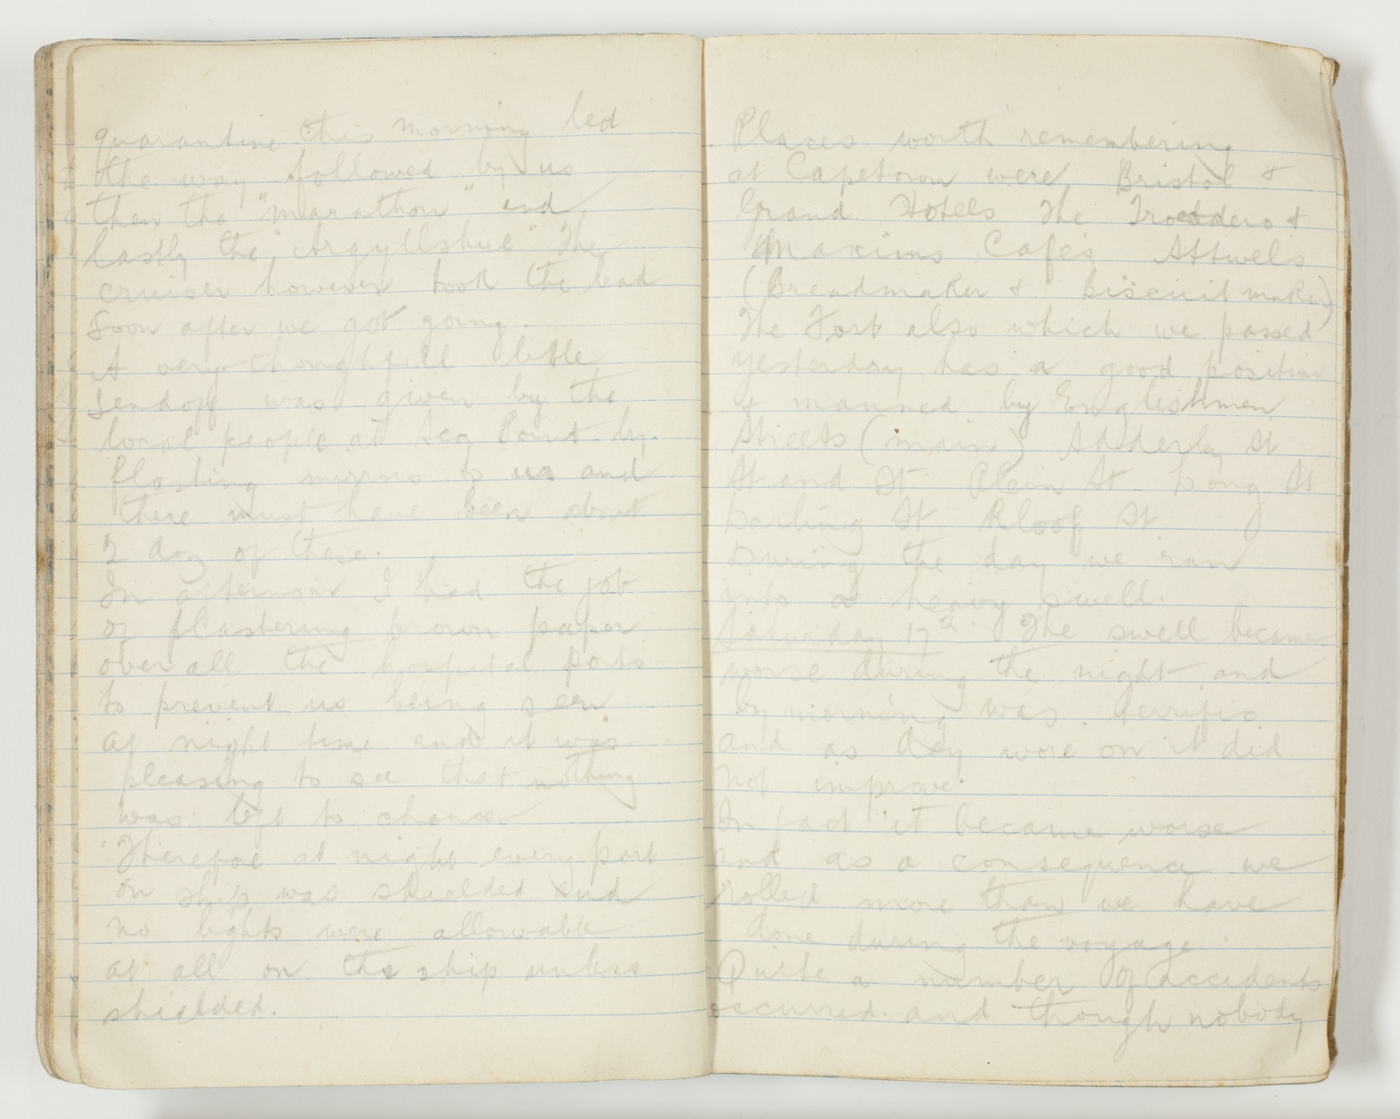 quarantine this morning led
the way followed by us
then the "Marathon" and
lastly the "Argyllshire" The
cruiser however took the lead
soon after we got going.
A very thoughtfull little
sendoff was given by the
local people at Sea Point by
flasting mirrors to us and
there must have been about
2 doz of these.
In afternoon I had the job
of plastering brown paper
over all the hospital ports
to prevent us being seen
at night time and it was
pleasing to see that nothing
was left to chance
Therefore at night every port
on ship was shielded and
no lights were allowable
at all on the ship unless
shielded.
Places worth remembering
at Capetown were Bristol &
Grand Hotels The Trocadero &
Maxims Cafes Attwels
(Breadmaker & biscuit maker)
The Fort also which we passed
yesterday has a good position
& manned by Englishmen
Streets (main) Adderley St
Strand St Plein St Long St
Darling St Kloof St
During the day we ran
into a heavy swell.
Saturday 17th The swell became
worse during the night and
by morning was terrific
and as day wore on it did
not improve.
In fact it became worse
and as a consequence we
rolled more than we have
done during the voyage.
Quite a number of accidents
occurred and though nobody